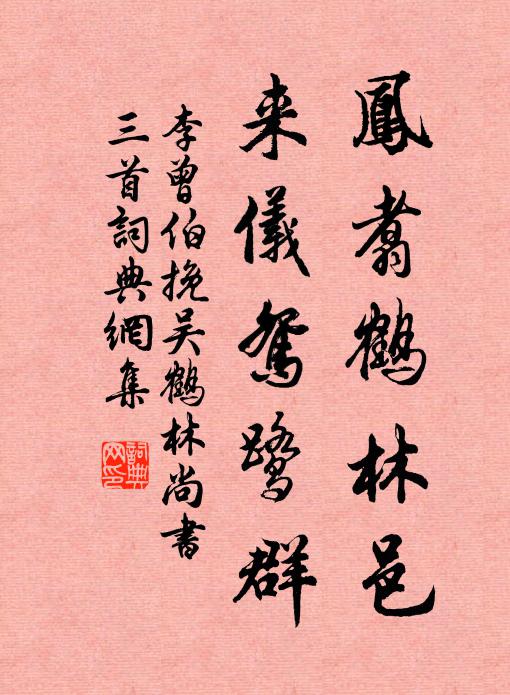 鳳翥鶴林邑
来儀鴛鷺群
李曾伯挽吴鶴林尚書
三首詞典網集
詞典
网印